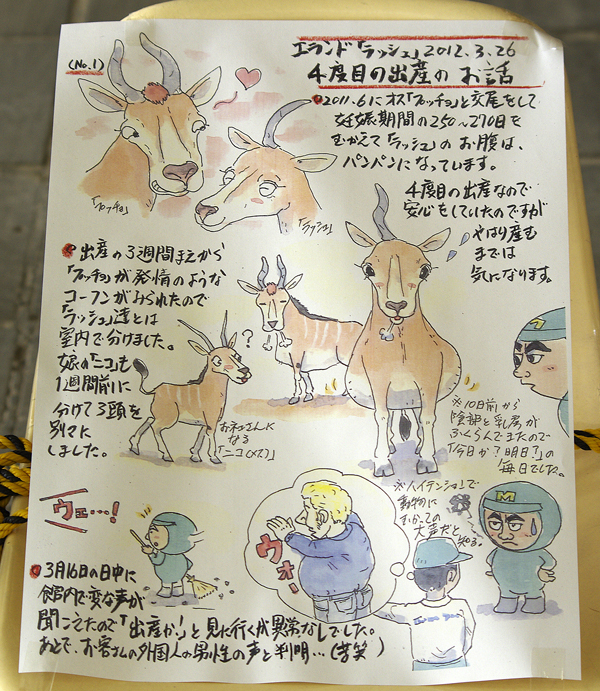 (No.1)
エランド「ラッシュ」2012.3.26
4度目の出産のお話
2011.6にオス「ブッチョ」と交尾をして
妊娠期間の250〜270日を
むかえて「ラッシュ」のお腹は、
パンパンになっています。
「ブッチョ」
「ラッシュ」
4度目の出産なので
安心をしていたのですが
やはり産む
までは
気になります。
出産の3週間まえから
「ブッチョ」が発情のような
コーフンがみられたので
「ラッシュ」達とは
室内で分けました。
娘の「ニコ」も
1週間前に
分けて3頭を
別々に
しました。
?
お姉さんに
なる
「ニコ(メス)」
※10日前から
陰部と乳房が
ふくらんできたので
「今日か?明日?」の
毎日でした。
ウェ…!
ウオー
※ハイテンションで
動物に
むかっての
大声だと
知る。
M
3月16日の日中に
館内で変な声が
聞こえたので「出産か!」と見に行くが異常なしでした。
あとで、お客さんの外国人の男性の声と判明…(苦笑)